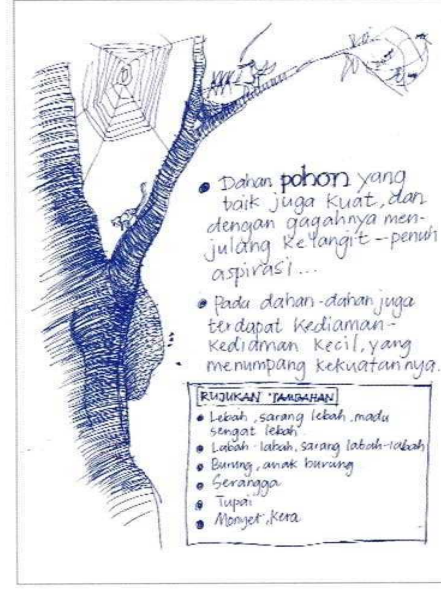 • Dahan pohon yang
baik juga kuat, dan
dengan gagahnya men-
julang kelangit - penuh
aspirasi...
• Pada dahan-dahan juga
terdapat kediaman-
kediaman kecil, yang
menumpang kekuatannya.
RUJUKAN TAMBAHAN
• Lebah, sarang lebah, madu
sengat lebah
• Labah-labah, sarang labah-labah
• Burung, anak burung
• Serangga
• Tupai
• Monyet, kera